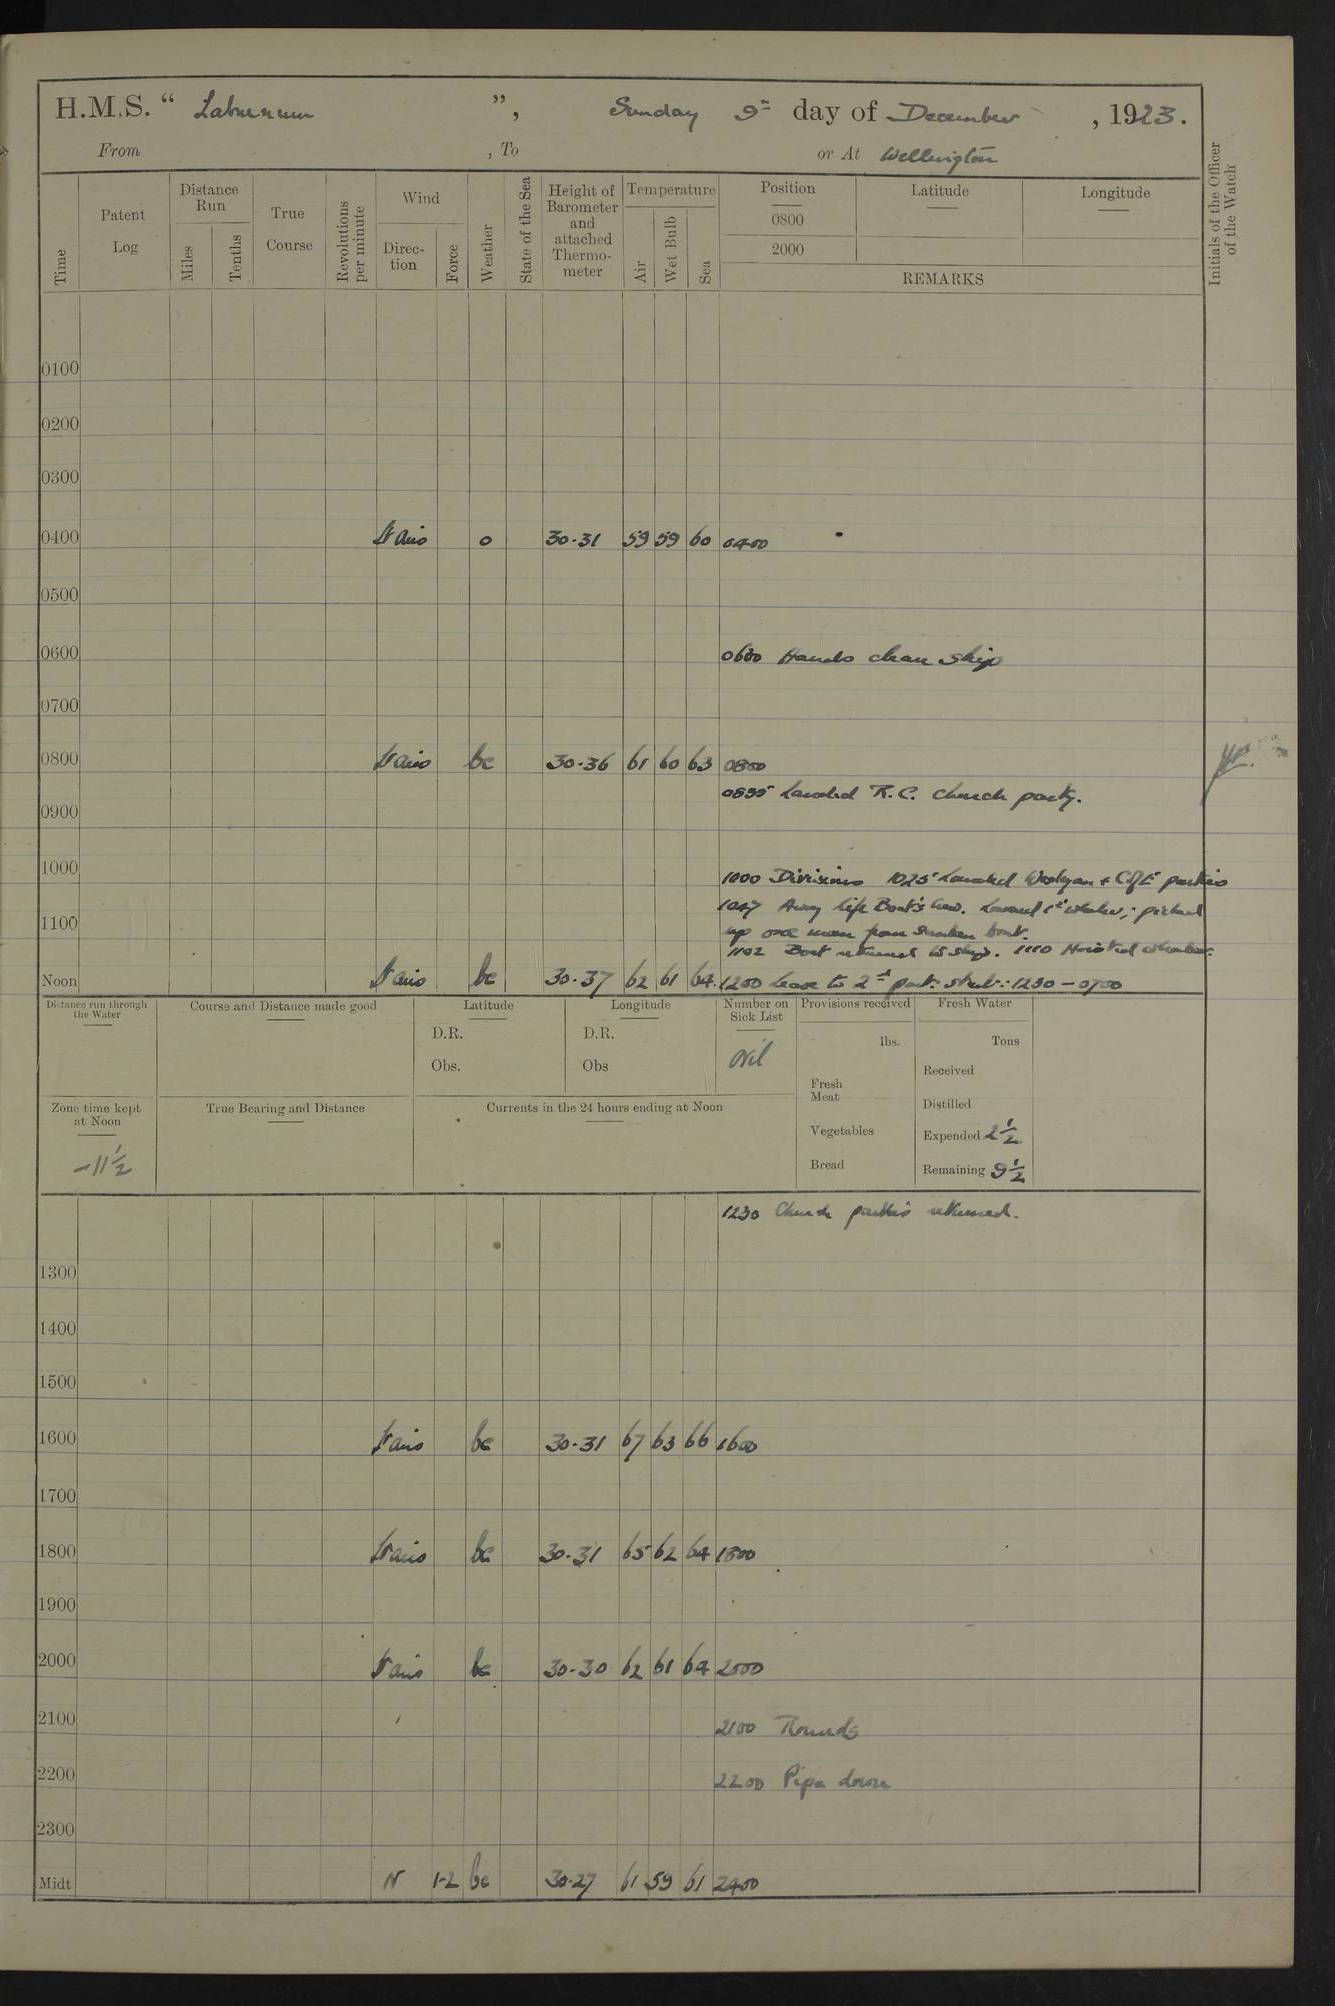 H.M.S. “ Laburnum ”, Sunday 9th day of December, 1923.
From , To or At Wellington
Time
Patent Log
Distance Run
Miles
Tenths
True Course
Revolutions per minute
Wind
Direction
Force
Weather
State of the Sea
Height of Barometer and attached Thermometer
Temperature
Air
Wet Bulb
Sea
Position
0800
2000
Latitude
Longitude
REMARKS
Initials of the Officer of the Watch
0100
0200
0300
0400 Lt airs o 30.31 59 59 60 0400
0500
0600 0600 Hands clean ship
0700
0800 Lt airs bc 30.36 61 60 63 0800
0855 Landed R.C. Church party.
0900
1000 1000 Divisions 1025 Landed Wesleyan & C of E parties
1047 Away life Boat's crew. Lowered 1st whaler; picked
1100 up one man from sunken boat.
1102 Boat returned to ship. 1110 Hoisted whaler.
Noon Lt airs bc 30.37 62 61 64. 1200 Leave to 2nd part: stbd: 1230 - 0700
Distance run through the Water
Course and Distance made good
Latitude
D.R.
Obs.
Longitude
D.R.
Obs
Number on Sick List
Nil
Provisions received
lbs.
Fresh Meat
Vegetables
Bread
Fresh Water
Tons
Received
Distilled
Expended 2 1/2
Remaining 9 1/2
Zone time kept at Noon
-11 1/2
True Bearing and Distance
Currents in the 24 hours ending at Noon
1230 Church parties returned.
1300
1400
1500
1600 Lt airs bc 30.31 67 63 66 1600
1700
1800 Lt airs bc 30.31 65 62 64 1800
1900
2000 Lt airs bc 30.30 62 61 64 2000
2100 2100 Rounds
2200 2200 Pipe down
2300
Midt N 1-2 bc 30.27 61 59 61 2400